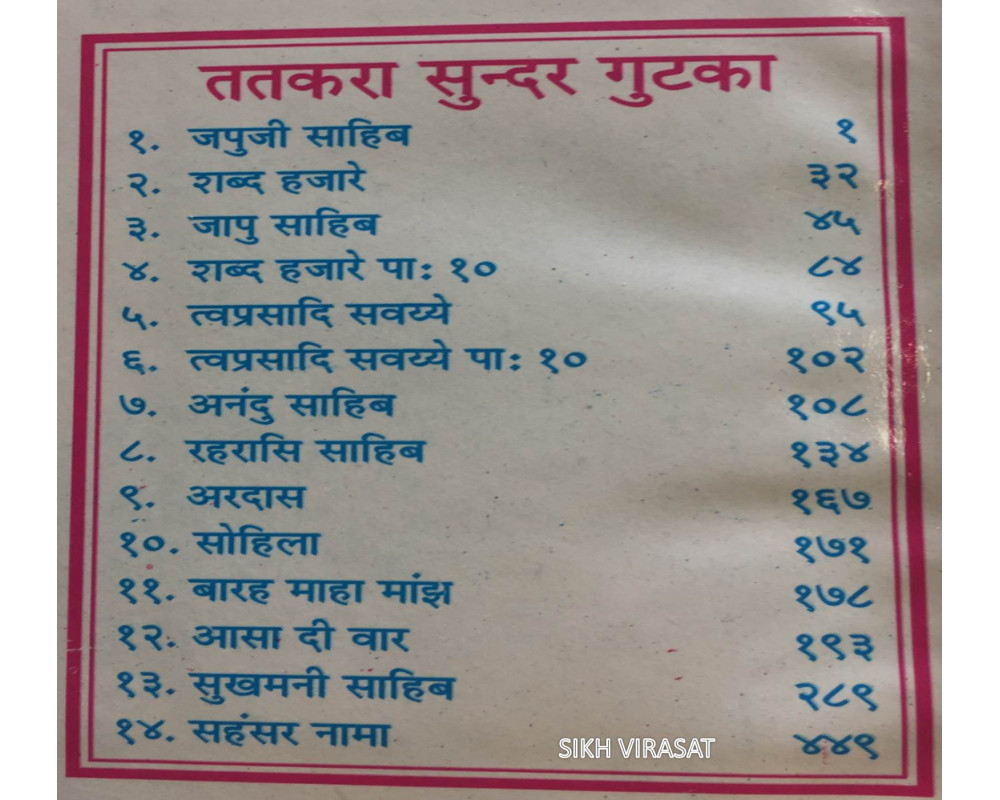 ततकरा सुन्दर गुटका
१. जपुजी साहिब १
२. शब्द हजारे ३२
३. जापु साहिब ४५
४. शब्द हजारे पा: १० ८४
५. त्वप्रसादि सवय्ये ९५
६. त्वप्रसादि सवय्ये पा: १० १०२
७. अनंदु साहिब १०८
८. रहरासि साहिब १३४
९. अरदास १६७
१०. सोहिला १७१
११. बारह माहा मांझ १७८
१२. आसा दी वार १९३
१३. सुखमनी साहिब २८९
१४. सहंसर नामा ४४९
SIKH VIRASAT